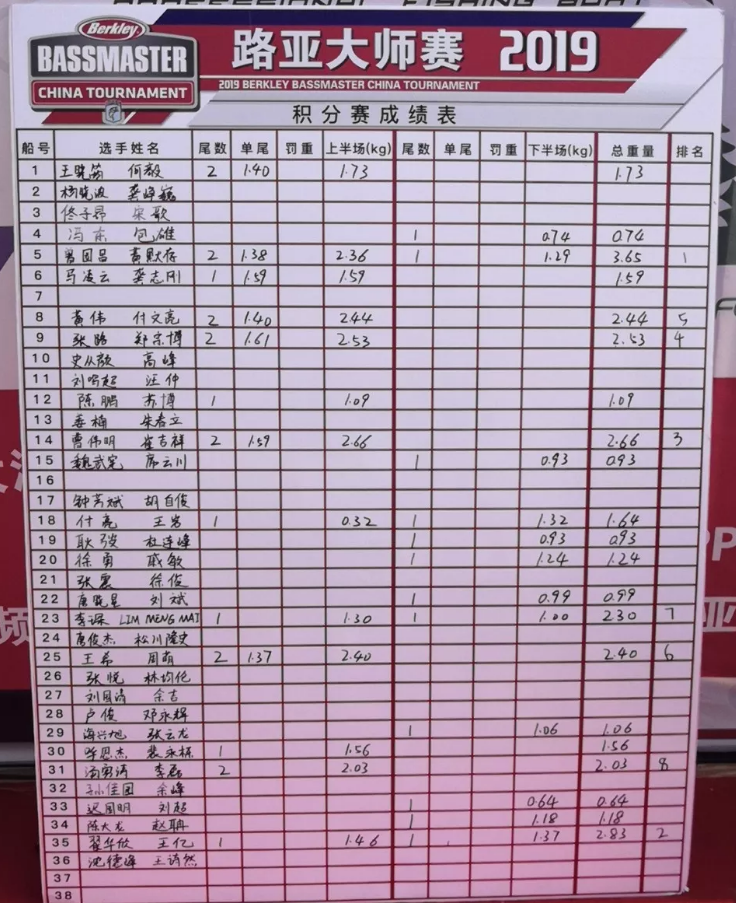 Berkley
BASSMASTER
CHINA TOURNAMENT
路亚大师赛 2019
2019 BERKLEY BASSMASTER CHINA TOURNAMENT
积分赛成绩表
船号 选手姓名 尾数 单尾 罚重 上半场(kg) 尾数 单尾 罚重 下半场(kg) 总重量 排名
1 何毅 2 1.40 1.73 1.73
2 杨晓波
3 佟子昂 宋歌
4 冯东 包雄 1 0.74 0.74
5 曾国昌 黄默存 2 1.38 2.36 1 1.29 3.65 1
6 马凌云 龚志刚 1 1.59 1.59 1.59
7
8 黄伟 付文亮 2 1.40 2.44 2.44 5
9 张路 郑宗博 2 1.61 2.53 2.53 4
10 高峰
11 汪仲
12 陈鹏 苏博 1 1.09 1.09
13 姜楠 朱春立
14 曹伟明 崔吉祥 2 1.59 2.66 2.66 3
15 魏武定 席云川 1 0.93 0.93
16
17 钟芳斌 胡自俊
18 付亮 王岩 1 0.32 1 1.32 1.64
19 耿强 杜连峰 1 0.93 0.93
20 徐勇 戚敏 1 1.24 1.24
21 张震 徐俊
22 唐晓星 刘斌 1 0.99 0.99
23 李谋 LIM MENG MAI 1 1.30 1 1.00 2.30 7
24 唐俊杰 松川隆史
25 王希 周萌 2 1.37 2.40 2.40 6
26 张悦 林均伦
27 余吉
28 卢俊 邓永辉
29 海兴旭 张云龙 1 1.06 1.06
30 毕恩杰 裴永栋 1 1.56 1.56
31 李磊 2 2.03 2.03 8
32 孙佳团 余峰
33 刘超 1 0.64 0.64
34 陈大龙 赵聃 1 1.18 1.18
35 翟华欣 王亿 1 1.46 1 1.37 2.83 2
36 沈德峰 王诗然
37
38